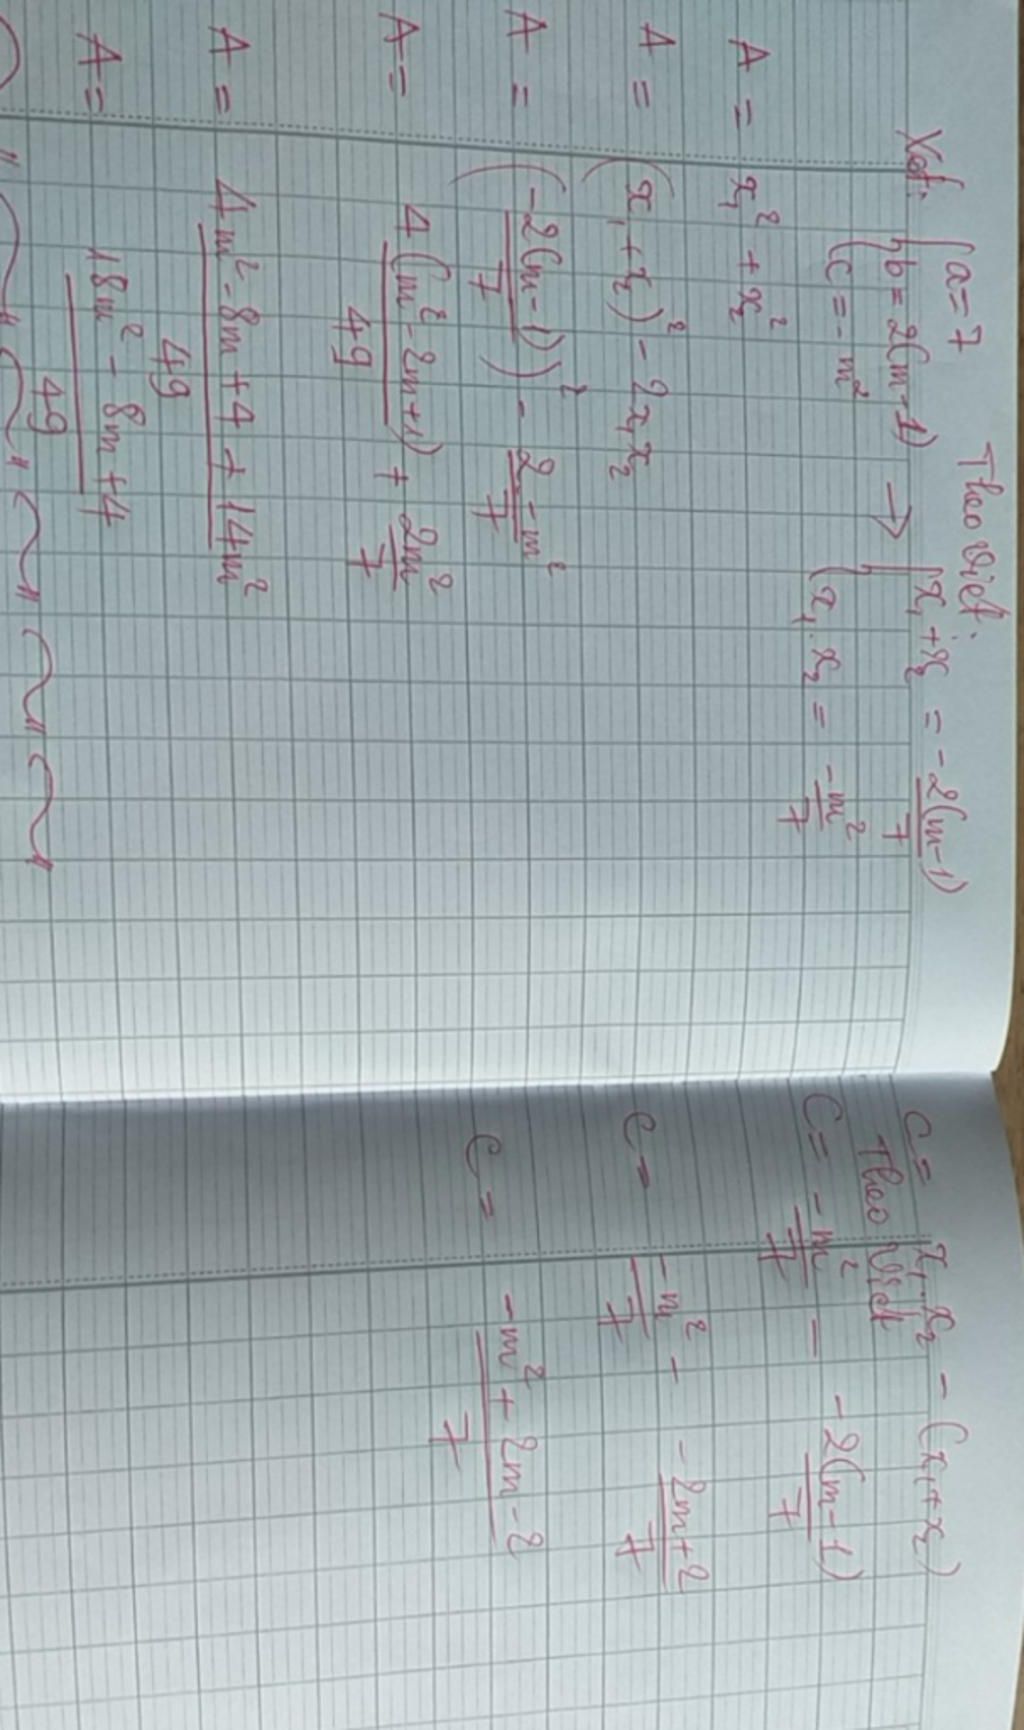 Theo Viet:
Xét: { a = 7 → { x₁ + x₂ = -2(m-1)/7
{ b = 2(m-1)
{ c = -m² { x₁ . x₂ = -m²/7
A = x₁² + x₂²
A = (x₁ + x₂)² - 2x₁x₂
A = (-2(m-1)/7)² - 2 -m²/7
A = 4(m² - 2m + 1)/49 + 2m²/7
A = 4m² - 8m + 4 + 14m²/49
A = 18m² - 8m + 4/49
C = x₁.x₂ - (x₁ + x₂)
Theo Viet
C = -m²/7 = -2(m-1)/7
C = -m²/7 - -2m+2/7
C = -m² + 2m - 2/7